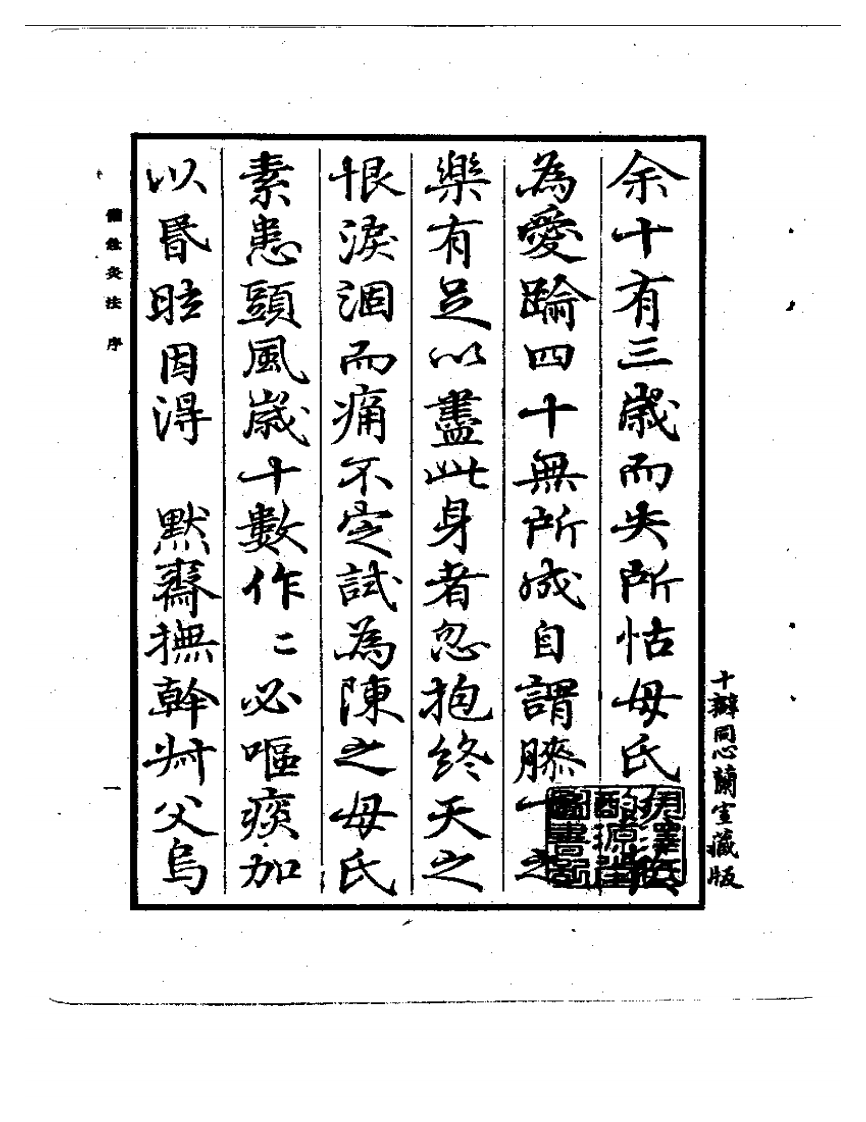 十瓣同心蘭室藏版
余十有三歲而失所怙母氏
為愛踰四十無所成自謂膝下之
樂有足以盡此身者忽抱終天之
恨淚涸而痛不定試為陳之母氏
素患頭風歲十數作二必嘔痰加
以昬眩因得　默齋撫幹叔父烏
伊澤氏
酌源堂
圖書記
備急灸法　序
一